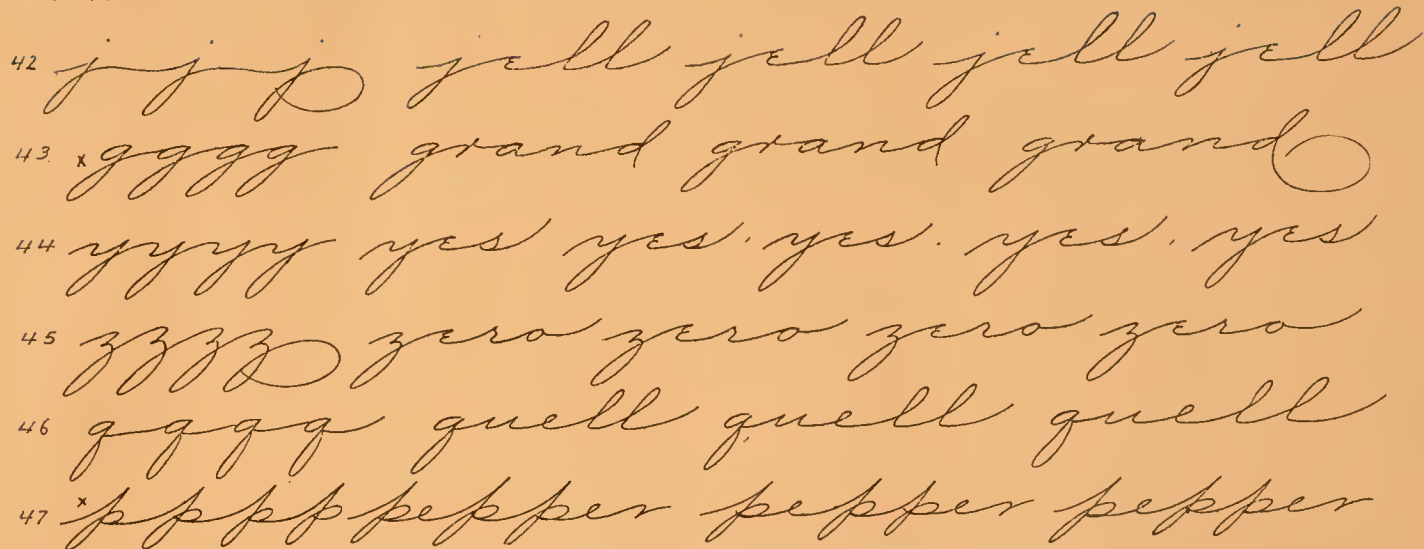 42 j j j jell jell jell jell
43. x gggg grand grand grand
44 yyyy yes yes. yes. yes. yes
45 zzzz zero zero zero zero
46 qqqq quell quell quell
47 x pppp pepper pepper pepper